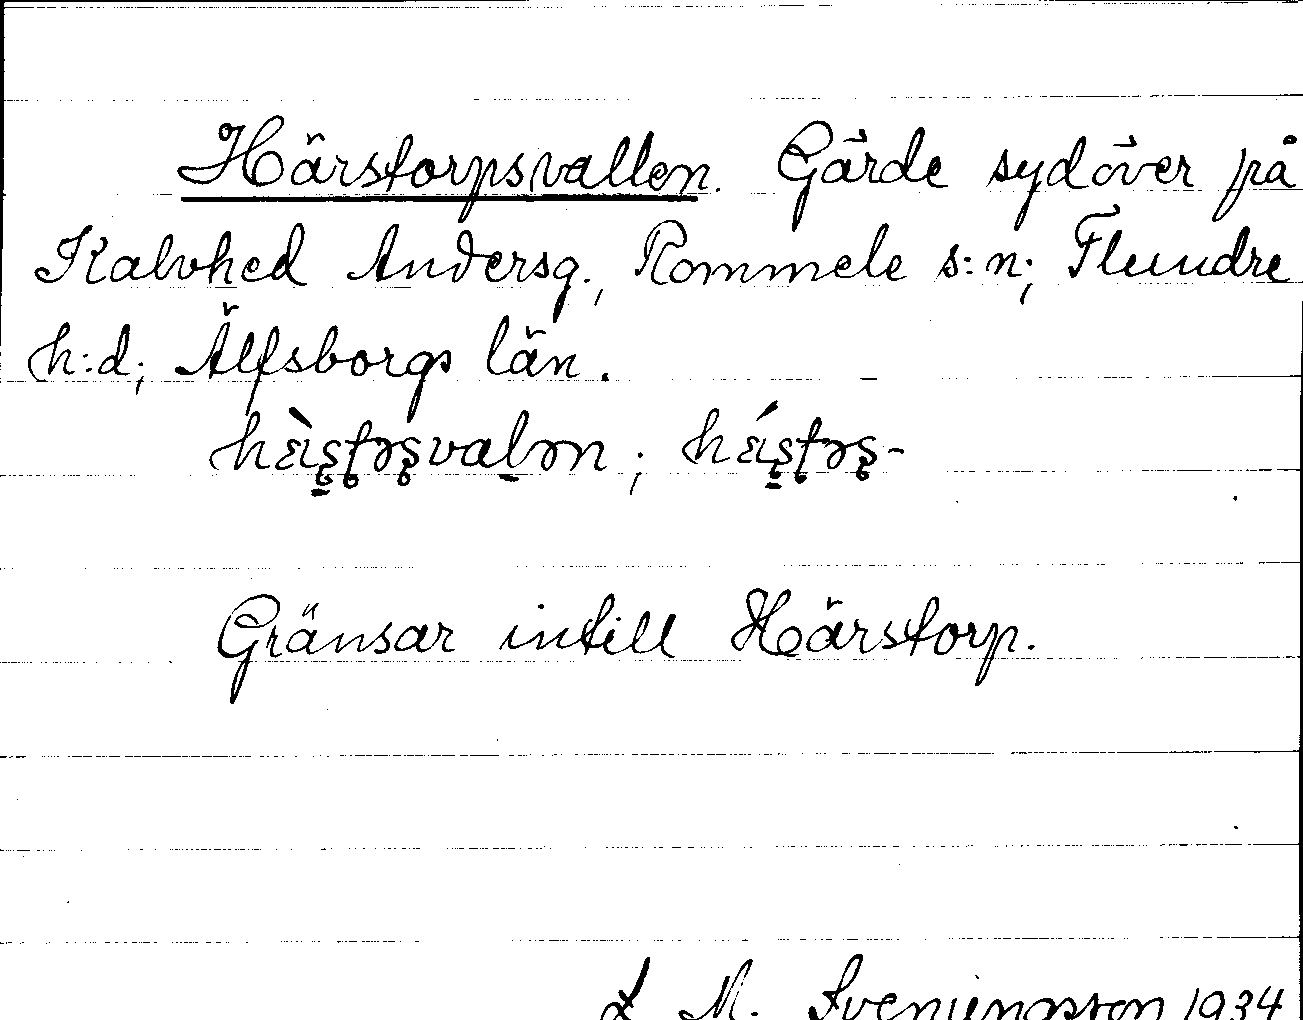 Härstorpsvallen. Gärde sydöver på
Kalvhed Andersg., Rommele s:n; Flundre
h:d; Älfsborgs län.
hæ̀ʂʈəʂvalən ; hǽʂʈəʂ-
Gränsar intill Härstorp.
L M. Svenungsson 1934